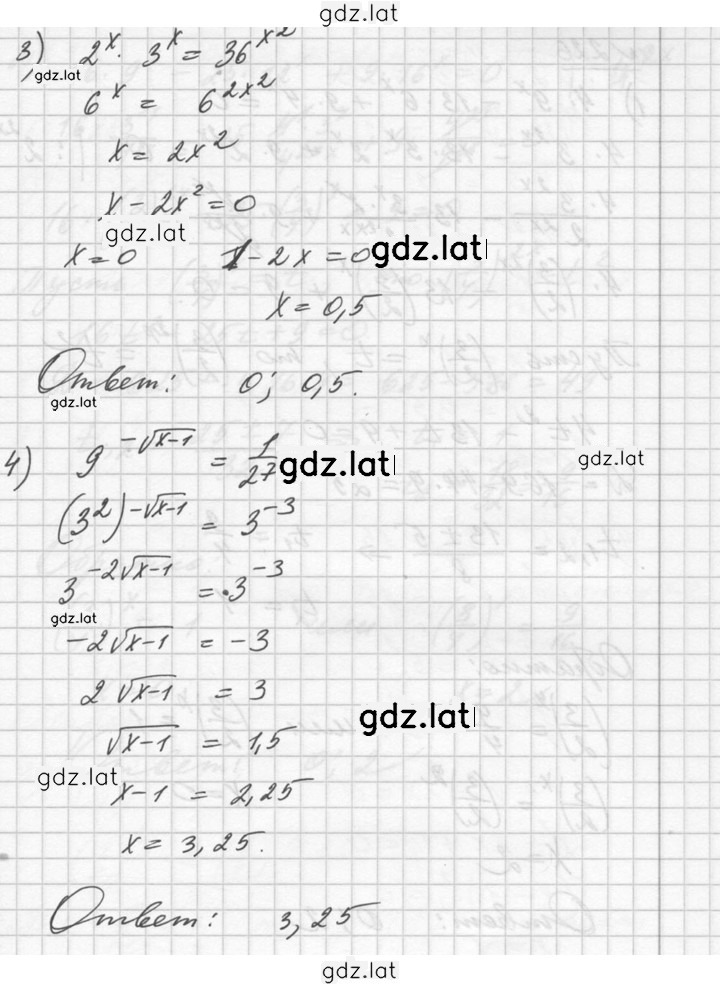 gdz.lat
3) 2^x · 3^x = 36^{x^2}
gdz.lat
6^x = 6^{2x^2}
x = 2x^2
x - 2x^2 = 0
gdz.lat
gdz.lat
x = 0 1 - 2x = 0
x = 0,5
Ответ: 0; 0,5.
gdz.lat
4) 9^{-√(x-1)} = 1/27
gdz.lat
gdz.lat
(3^2)^{-√(x-1)} = 3^{-3}
3^{-2√(x-1)} = 3^{-3}
gdz.lat
-2√(x-1) = -3
2√(x-1) = 3
gdz.lat
√(x-1) = 1,5
gdz.lat
x-1 = 2,25
x = 3,25.
Ответ: 3,25
gdz.lat